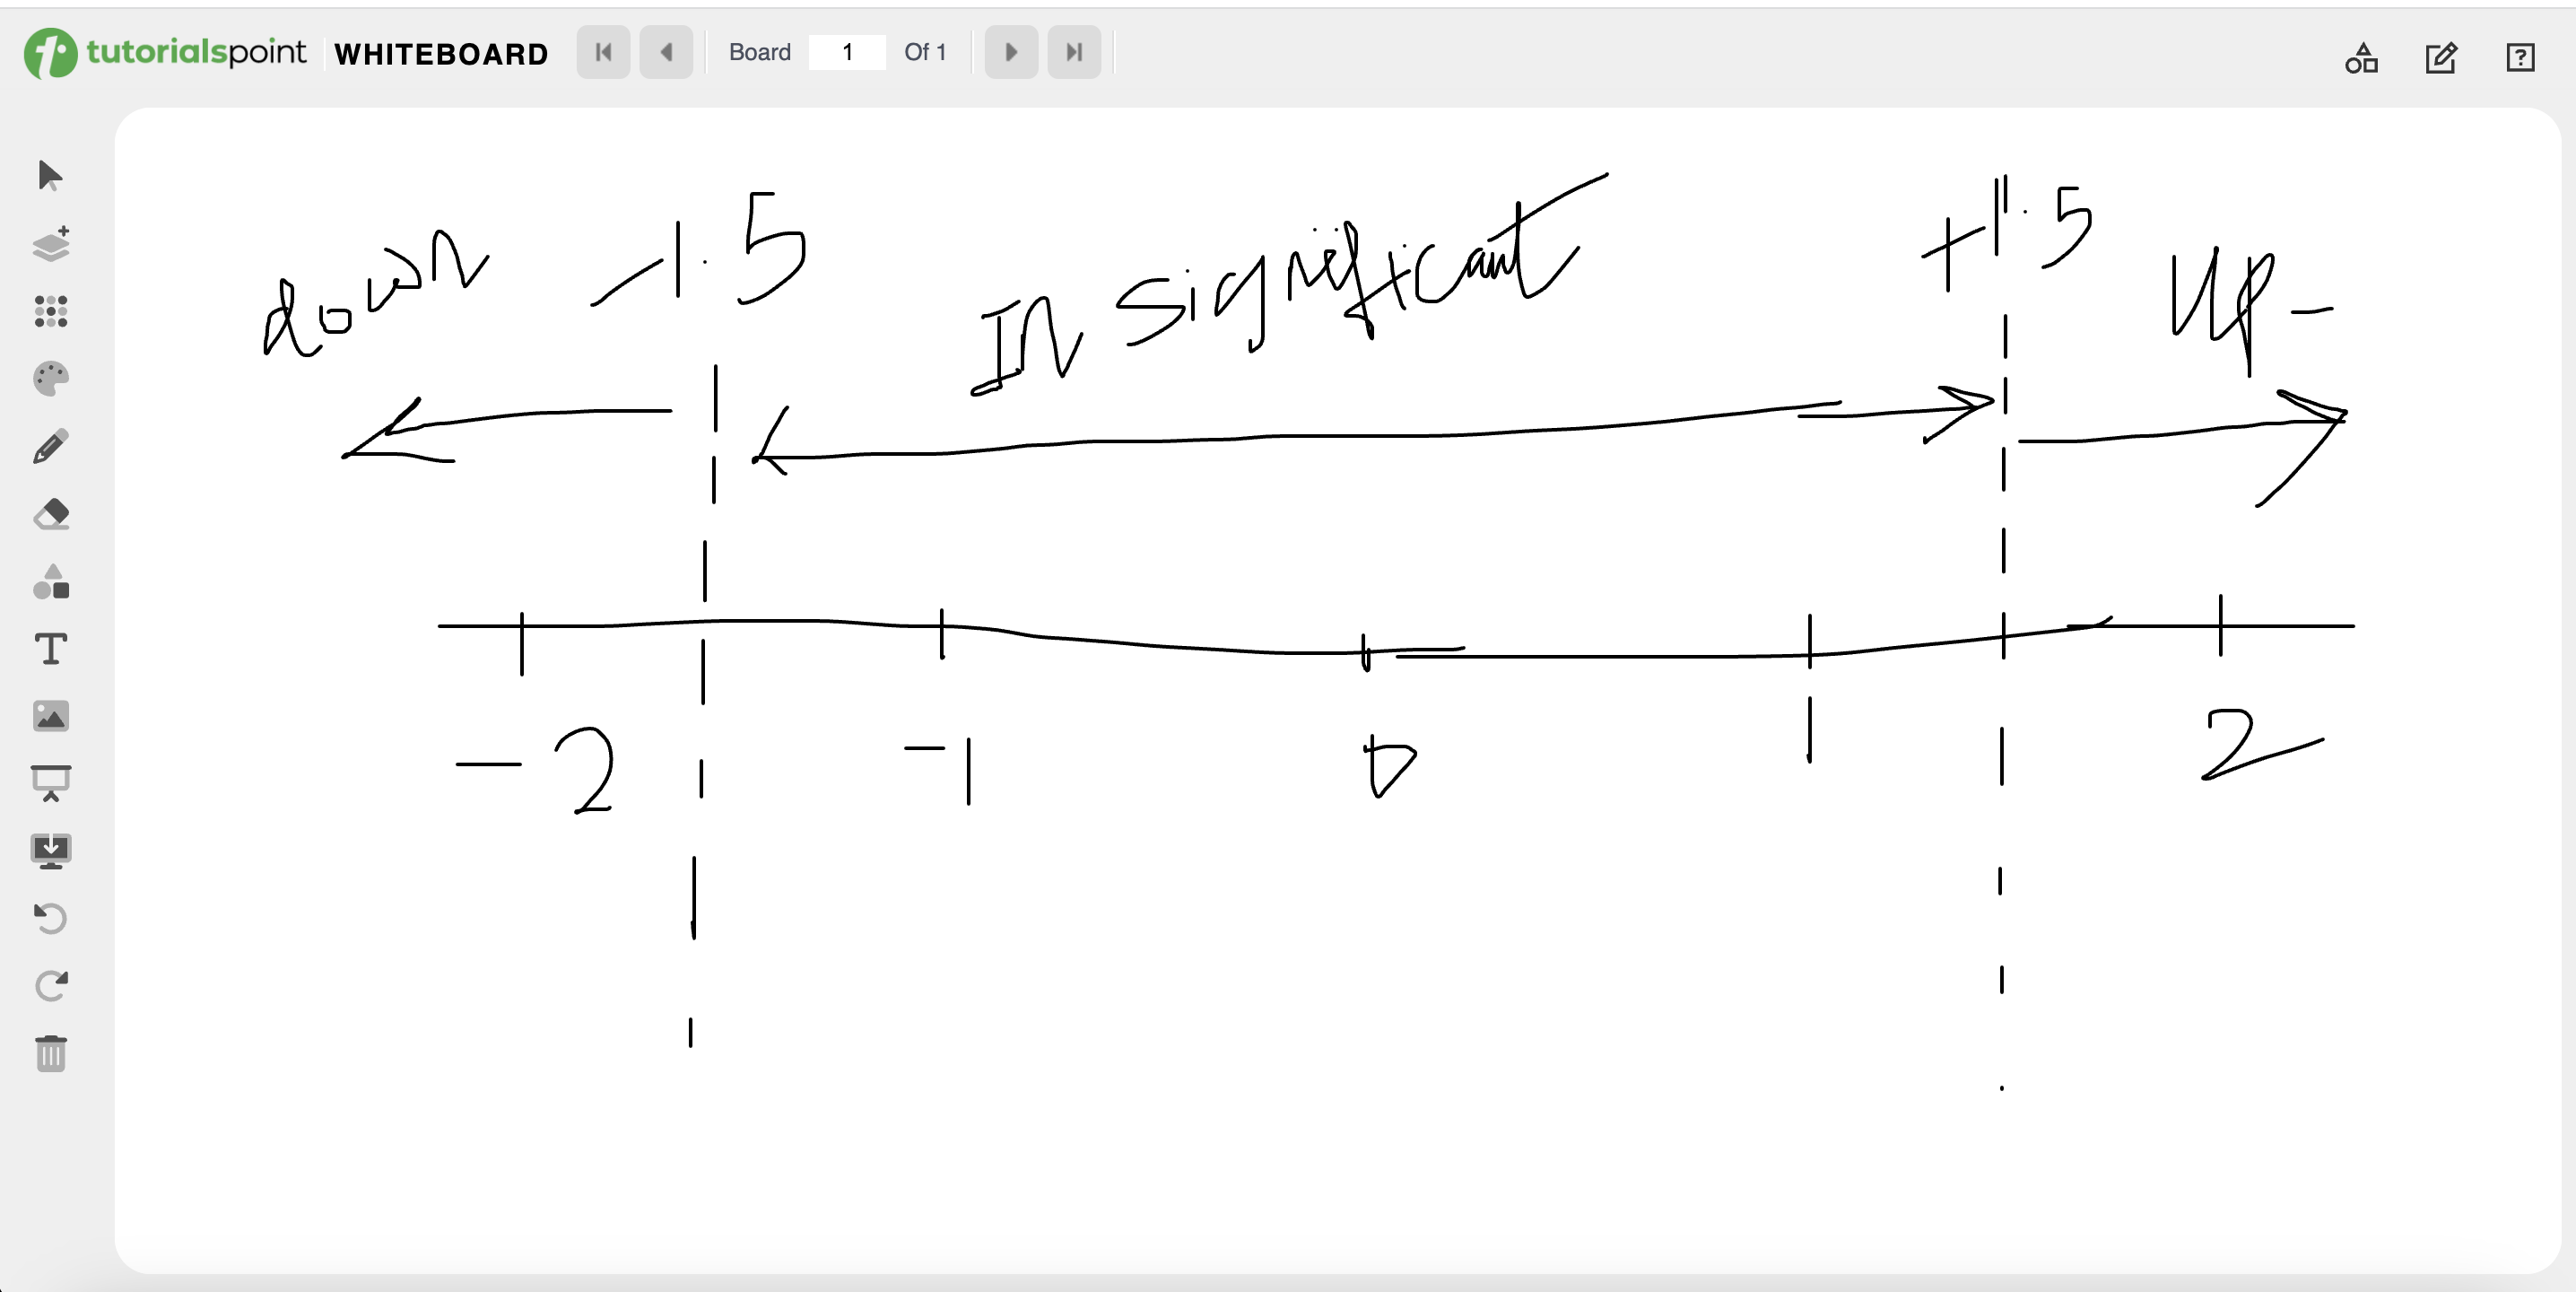 tutorialspoint WHITEBOARD Board 1 Of 1
down -1.5 INsignificant +1.5 Up-
-2 -1 0 1 2